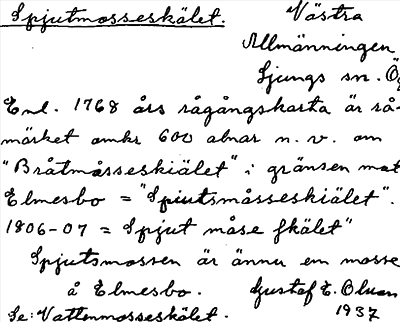 Spjutmosseskälet. Västra
Allmänningen
Ljungs sn. Ög
Enl. 1768 års rågångskarta är rå-
märket omkr 600 alnar n. v. om
"Bråtmåsseskiälet" i gränsen mot
Elmesbo = "Spiutsmåsseskiälet".
1806-07 = Spjut måse skälet"
Spjutsmossen är ännu en mosse
å Elmesbo. Gustaf E. Olsson
Se: Vattenmosseskälet. 1937